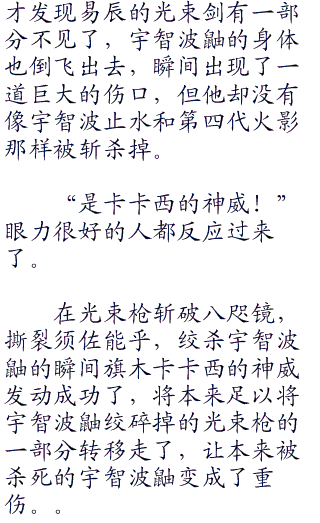 才发现易辰的光束剑有一部
分不见了，宇智波鼬的身体
也倒飞出去，瞬间出现了一
道巨大的伤口，但他却没有
像宇智波止水和第四代火影
那样被斩杀掉。
“是卡卡西的神威！”
眼力很好的人都反应过来
了。
在光束枪斩破八咫镜，
撕裂须佐能乎，绞杀宇智波
鼬的瞬间旗木卡卡西的神威
发动成功了，将本来足以将
宇智波鼬绞碎掉的光束枪的
一部分转移走了，让本来被
杀死的宇智波鼬变成了重
伤。。